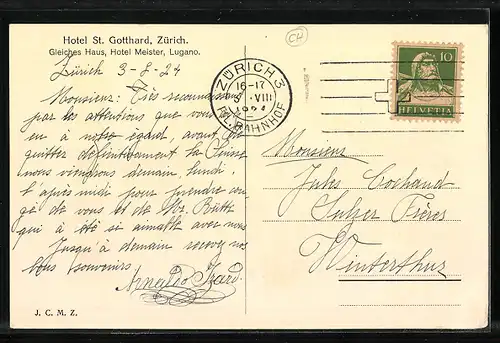 Hotel St. Gotthard, Zürich.
Gleiches Haus, Hotel Meister, Lugano.
Zürich 3-8-24
Monsieur: Très reconnaissant
par les attentions que vous
en à notre égard, avant de
quitter définitivement la Suisse
nous viendrons demain, lundi,
l'après midi pour prendre con-
gé de vous et de Mr. Rütt
qui a été si aimable avec nous
Jusqu'à demain recevez nos
bons souvenirs.
Arnaldo
J. C. M. Z.
CH
ZÜRICH 3
16-17
3. VIII
1924
BAHNHOF
10
HELVETIA
Monsieur
Jules Cochand
Sulzer Frères
Winterthur